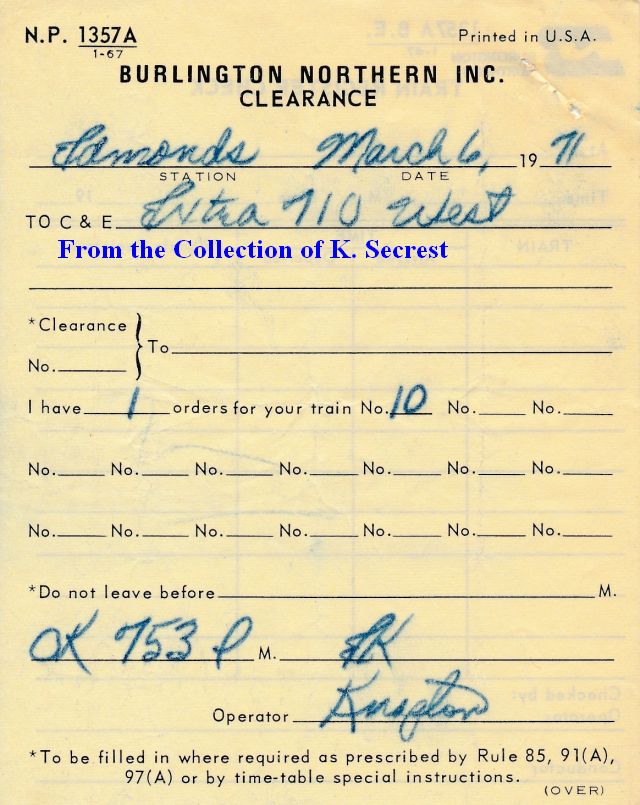 N.P. 1357A Printed in U.S.A.
1-67
BURLINGTON NORTHERN INC.
CLEARANCE
Edmonds March 6, 19 71
STATION DATE
TO C & E Extra 710 West
From the Collection of K. Secrest
*Clearance
No. } To
I have 1 orders for your train No. 10 No. No.
No. No. No. No. No. No. No.
No. No. No. No. No. No. No.
*Do not leave before M.
OK 753 P M.
Operator
*To be filled in where required as prescribed by Rule 85, 91(A),
97(A) or by time-table special instructions.
(OVER)